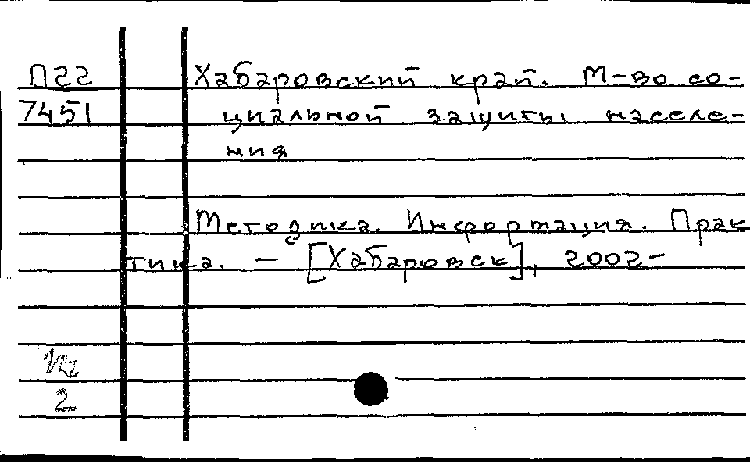 П22 Хабаровский край. М-во со-
7451 циальной защиты населе-
ния
Методика. Информация. Прак
тика. — [Хабаровск], 2002-
2